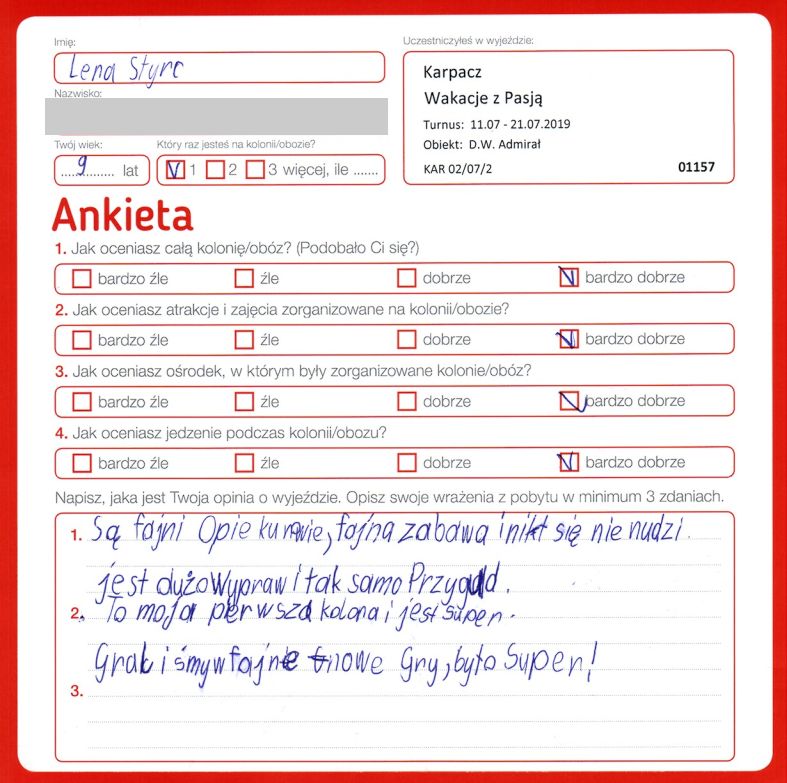 Imię:
Lena Styrc
Nazwisko:
Twój wiek:
9 lat
Który raz jesteś na kolonii/obozie?
V 1 2 3 więcej, ile .......
Uczestniczyłeś w wyjeździe:
Karpacz
Wakacje z Pasją
Turnus: 11.07 - 21.07.2019
Obiekt: D.W. Admirał
KAR 02/07/2 01157
Ankieta
1. Jak oceniasz całą kolonię/obóz? (Podobało Ci się?)
bardzo źle źle dobrze V bardzo dobrze
2. Jak oceniasz atrakcje i zajęcia zorganizowane na kolonii/obozie?
bardzo źle źle dobrze V bardzo dobrze
3. Jak oceniasz ośrodek, w którym były zorganizowane kolonie/obóz?
bardzo źle źle dobrze V bardzo dobrze
4. Jak oceniasz jedzenie podczas kolonii/obozu?
bardzo źle źle dobrze V bardzo dobrze
Napisz, jaka jest Twoja opinia o wyjeździe. Opisz swoje wrażenia z pobytu w minimum 3 zdaniach.
1. Są fajni Opie kunowie, fajna zabawa i nikt się nie nudzi.
jest dużo Wypraw i tak samo Przygód.
2. To moja pierwsza kolona i jest super.
Grali śmy w fajne nowe Gry, było Super!
3.